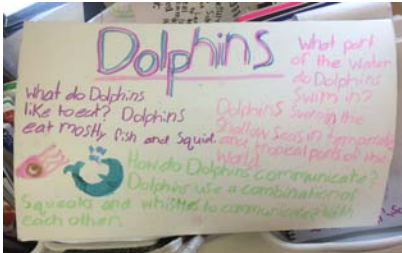 Dolphins
What do Dolphins
like to eat? Dolphins
eat mostly fish and squid.
What part
of the water
do Dolphins
swim in?
Dolphins swim in the
shallow seas in temperate
and tropical parts of the
world.
How do Dolphins communicate?
Dolphins use a combination of
Squeaks and whistles to communicate with
each other.